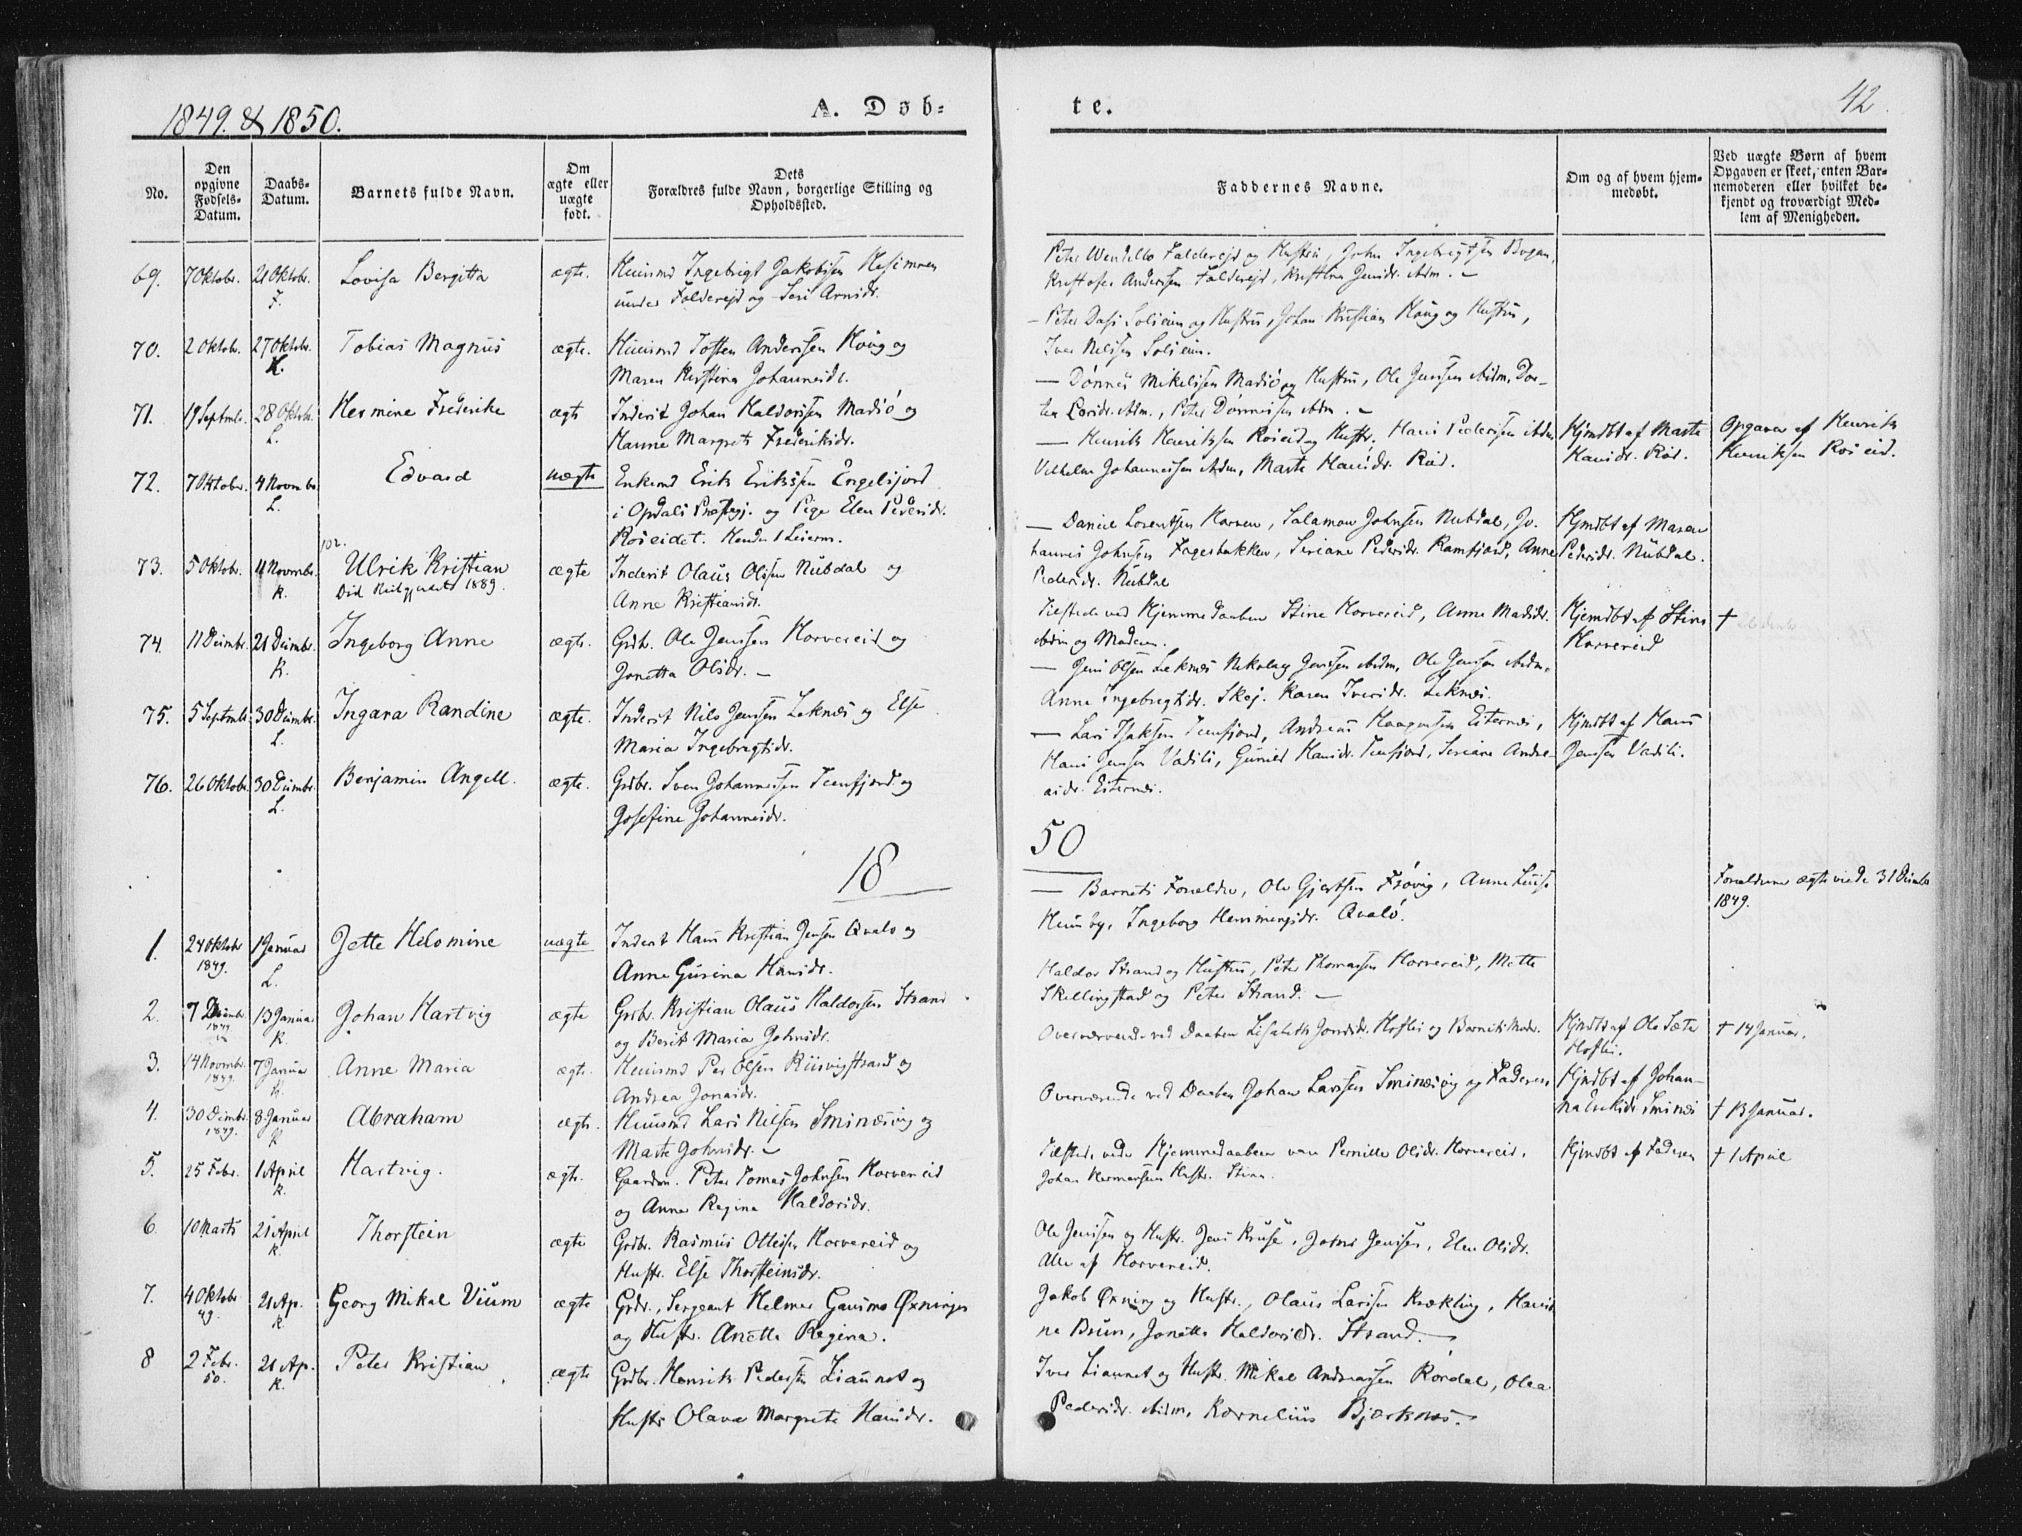 1849. & 1850.
A. Døb-
te.
42
No.
Den opgivne Fødsels-Datum.
Daabs-Datum.
Barnets fulde Navn.
Om ægte eller uægte født.
Dets Forældres fulde Navn, borgerlige Stilling og Opholdssted.
Faddernes Navne.
Om og af hvem hjem-medøbt.
Ved uægte Børn af hvem Opgaven er skeet, enten Bar-nemoderen eller hvilket be-kjendt og troværdigt Med-lem af Menigheden.
69. 7 Oktobr. 21 Oktobr. Lovisa Bergitta ægte. Huusmd Ingebrigt Jakobsen
under Folderejd og Arnsdr.
Peter Wendelbo Folderejd og Hustru, John Ingebrigtsen
Kristofer Andersen Folderejd,
70. 2 Oktobr. 27 Oktobr. K. Tobias Magnus ægte. Huusmd Tosten Andersen Houg og
Maren Kirstina Johannesdr.
Peter Solsem og Hustru, Johan Kristian Houg og Hustru,
Iver Nilssen Solsem.
71. 19 Septmbr. 28 Oktobr. L. Hermine Frederike ægte Inderst Johan Haldorsen Madsø og
Hanne Margrete Frederiksdr.
— Dønnes Mikelsen Madsø og Hustru, Ole Jenssen ibidm,
Peter Dønnesen ibdm.
72. 7 Oktober. 4 Novmbr. L. Edvard uægte Enkemd Erik Eriksen Engelsfjord
i Opdals Præstegj. og Pige Elen Pedersdr.
Røseidet. Hendes 1 Leierm.
— Henrik Henriksen Røseid og Hustr. Hans Pedersen ibdm,
Vilhelm Johannessen ibdm, Marte Hansdr. Rød.
Hjmdbt af Marte
Hansdr. Rød.
Opgaven af Henrik
Henriksen Røseid.
73. 5 Oktobr. 4 Novmbr. K. Ulrik Kristian
1889.
ægte Inderst Olaus Olsen Nubdal og
Anne Kristiansdr.
— Daniel Lorentsen Horsen, Salamon Johnsen Nubdal, Jo-
hannes Johnsen Fagebakken, Seriane Pedersdr. Ramfjord, Anne
Pedersdr. Nubdal
Hjmdbt af Maren
Pedersdr. Nubdal.
74. 11 Deumbr. 21 Deumbr. K. Ingeborg Anne ægte. Grdbr. Ole Jenssen Horvereid og
Jonetta Olsdr. —
Tilstede ved Hjemmedaaben Stine Horvereid, Anne Madsdr.
ibdm og Moderen.
Hjemdbt af Stine
Horvereid
†
75. 5 Septmbr. 30 Deumbr. L. Ingara Randine ægte. Inderst Nils Jenssen Leknes og Else
Maria Ingebrigtsdr.
— Jens Olsen Leknes Nikolay Jenssen ibidm, Ole Jenssen ibdm,
Anne Ingebrigtsdr. Skej. Karen Iversdr. Leknes.
76. 26 Oktobr. 30 Deumbr. L. Benjamin Angell. ægte. Grdbr. Sven Johannessen Teenfjord og
Josefine Johannesdr.
— Lars Isaksen Teenfjord, Andreas Haagensen Eiternes,
Hans Jenssen Vadli, Guneld Hansdr. Teenfjord, Seriane Andre-
asdr. Eiternes.
Hjmdbt af Hans
Jenssen Vadli.
18
50
1. 24 Oktobr 1849. 1 Januar L. Jette Helomine uægte Inderst Hans Kristian Jensen Qvalø og
Anne Gurina Hansdr.
— Barnets Forældre, Ole Gjertsen Frøvig, Anne Luise
Heimby, Ingeborg Hemmingsdr. Qvalø.
Forældrene ægteviede 31 Deumbr
1849.
2. 7 Deumbr 1849. 13 Januar K. Johan Hartvig ægte Grdbr. Kristian Olaus Haldorsen Strand
og Berit Maria Johnsdr.
Haldor Strand og Hustru, Peter Thomassen Horvereid, Mette
Skellingstad og Peter Strand. —
3. 14 Novmbr. 1849. 7 Januar K. Anne Maria ægte. Huusmd Per Olsen Riisvigstrand og
Andrea Jonasdr.
Overværende ved Daaben Lisabeth Jonsdr. Hoflis og Barnets Moder.
Hjmdbt af Ole Sæte
Hofli.
† 14 Januar.
4. 30 Deumbr. 1849. 8 Januar K Abraham ægte. Huusmd Lars Nilsen Smines og
Marte Johnsdr. —
Overværende ved Daaben Johan Larssen og Faderen
Hjmdbt af Johan-
na
† 13 Januar.
5. 25 Febr. 1 April K. Hartvig. ægte. Gaardm. Peter Tomas Johnsen Horvereid
og Anne Regine Haldorsdr.
Tilstede ved Hjemmedaaben vare Pernille Olsdr. Horvereid,
Johan Hermansens Hustr. Stina.
Hjmdbt af Faderen
† 1 April
6. 10 Marts 21 April K. Thorstein ægte Grdbr. Rasmus Ottesen Horvereid og
Hustr. Else Thorsteinsdr.
Ole Jenssen og Hustr. Jens Kruse, Jenssen, Elen Olsdr.
Alle af Horvereid.
7. 4 Oktobr 49. 21 Ap. K. Georg Mikal Vium ægte Grdbr., Sergeant Helmer Øxninges
og Hustr. Anette Regina.
Jakob Øxning og Hustr., Olaus Larsen Krækling, Hansi-
ne Brun, Jonette Haldorsdr. Strand. —
8 2 Febr. 50. 21 Ap. K. Peter Kristian ægte Grdbr. Henrik Pedersen Liaunet og
Hustr Olava Margrete Hansdr.
Iver Liaunet og Hustr. Mikal Andreassen Rørdal, Olea
Pedersdr. ibidm, Kornelius Bjørknes. —